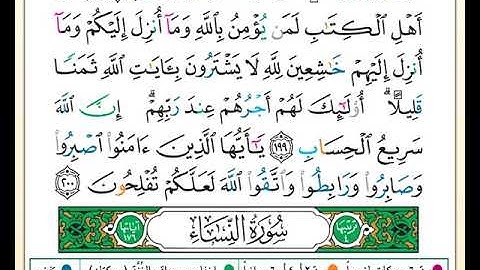 أَهْلِ ٱلْكِتَٰبِ لَمَن يُؤْمِنُ بِٱللَّهِ وَمَآ أُنزِلَ إِلَيْكُمْ وَمَآ
أُنزِلَ إِلَيْهِمْ خَٰشِعِينَ لِلَّهِ لَا يَشْتَرُونَ بِـَٔايَٰتِ ٱللَّهِ ثَمَنًا
قَلِيلًا ۗ أُو۟لَٰٓئِكَ لَهُمْ أَجْرُهُمْ عِندَ رَبِّهِمْ ۗ إِنَّ ٱللَّهَ
سَرِيعُ ٱلْحِسَابِ ١٩٩ يَٰٓأَيُّهَا ٱلَّذِينَ ءَامَنُوا۟ ٱصْبِرُوا۟
وَصَابِرُوا۟ وَرَابِطُوا۟ وَٱتَّقُوا۟ ٱللَّهَ لَعَلَّكُمْ تُفْلِحُونَ ٢٠٠
ترتيبها ٤ سُورَةُ ٱلنِّسَاءِ آياتها ١٧٦